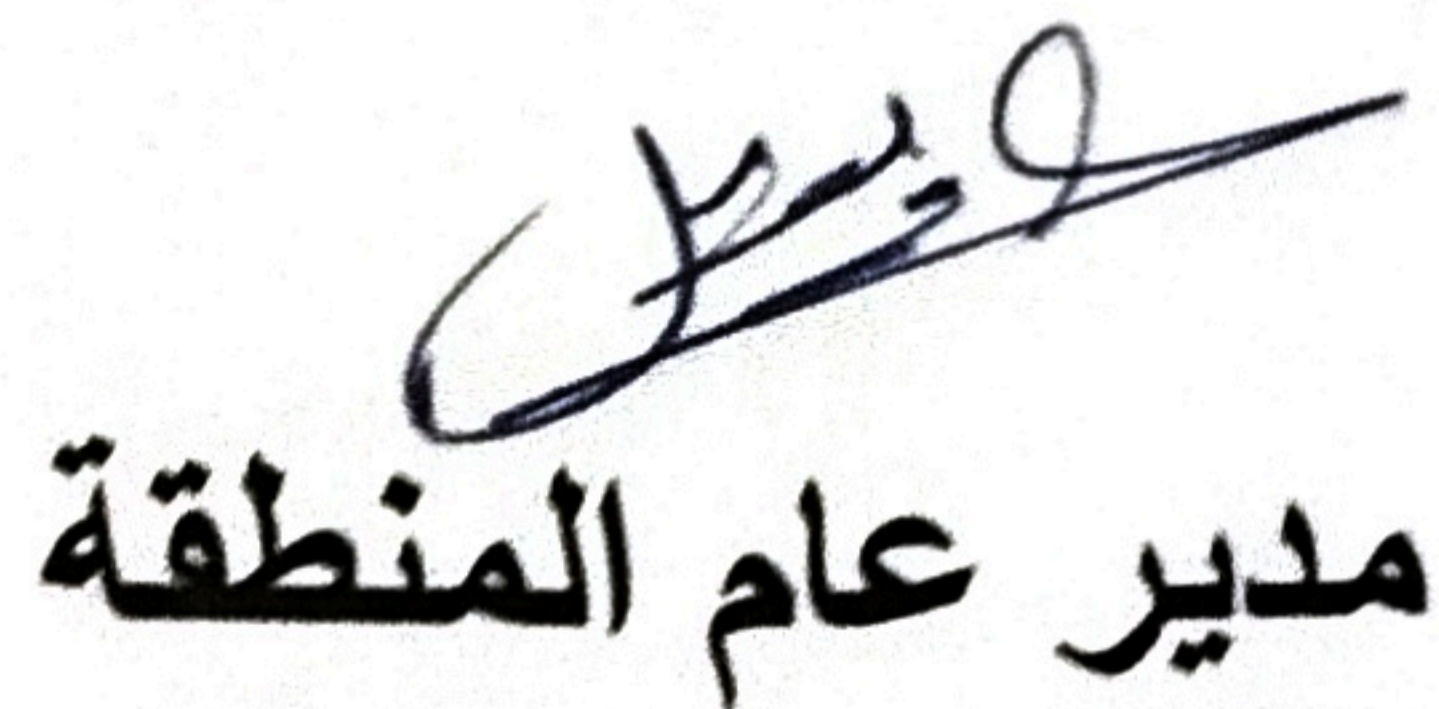 مدير عام المنطقة